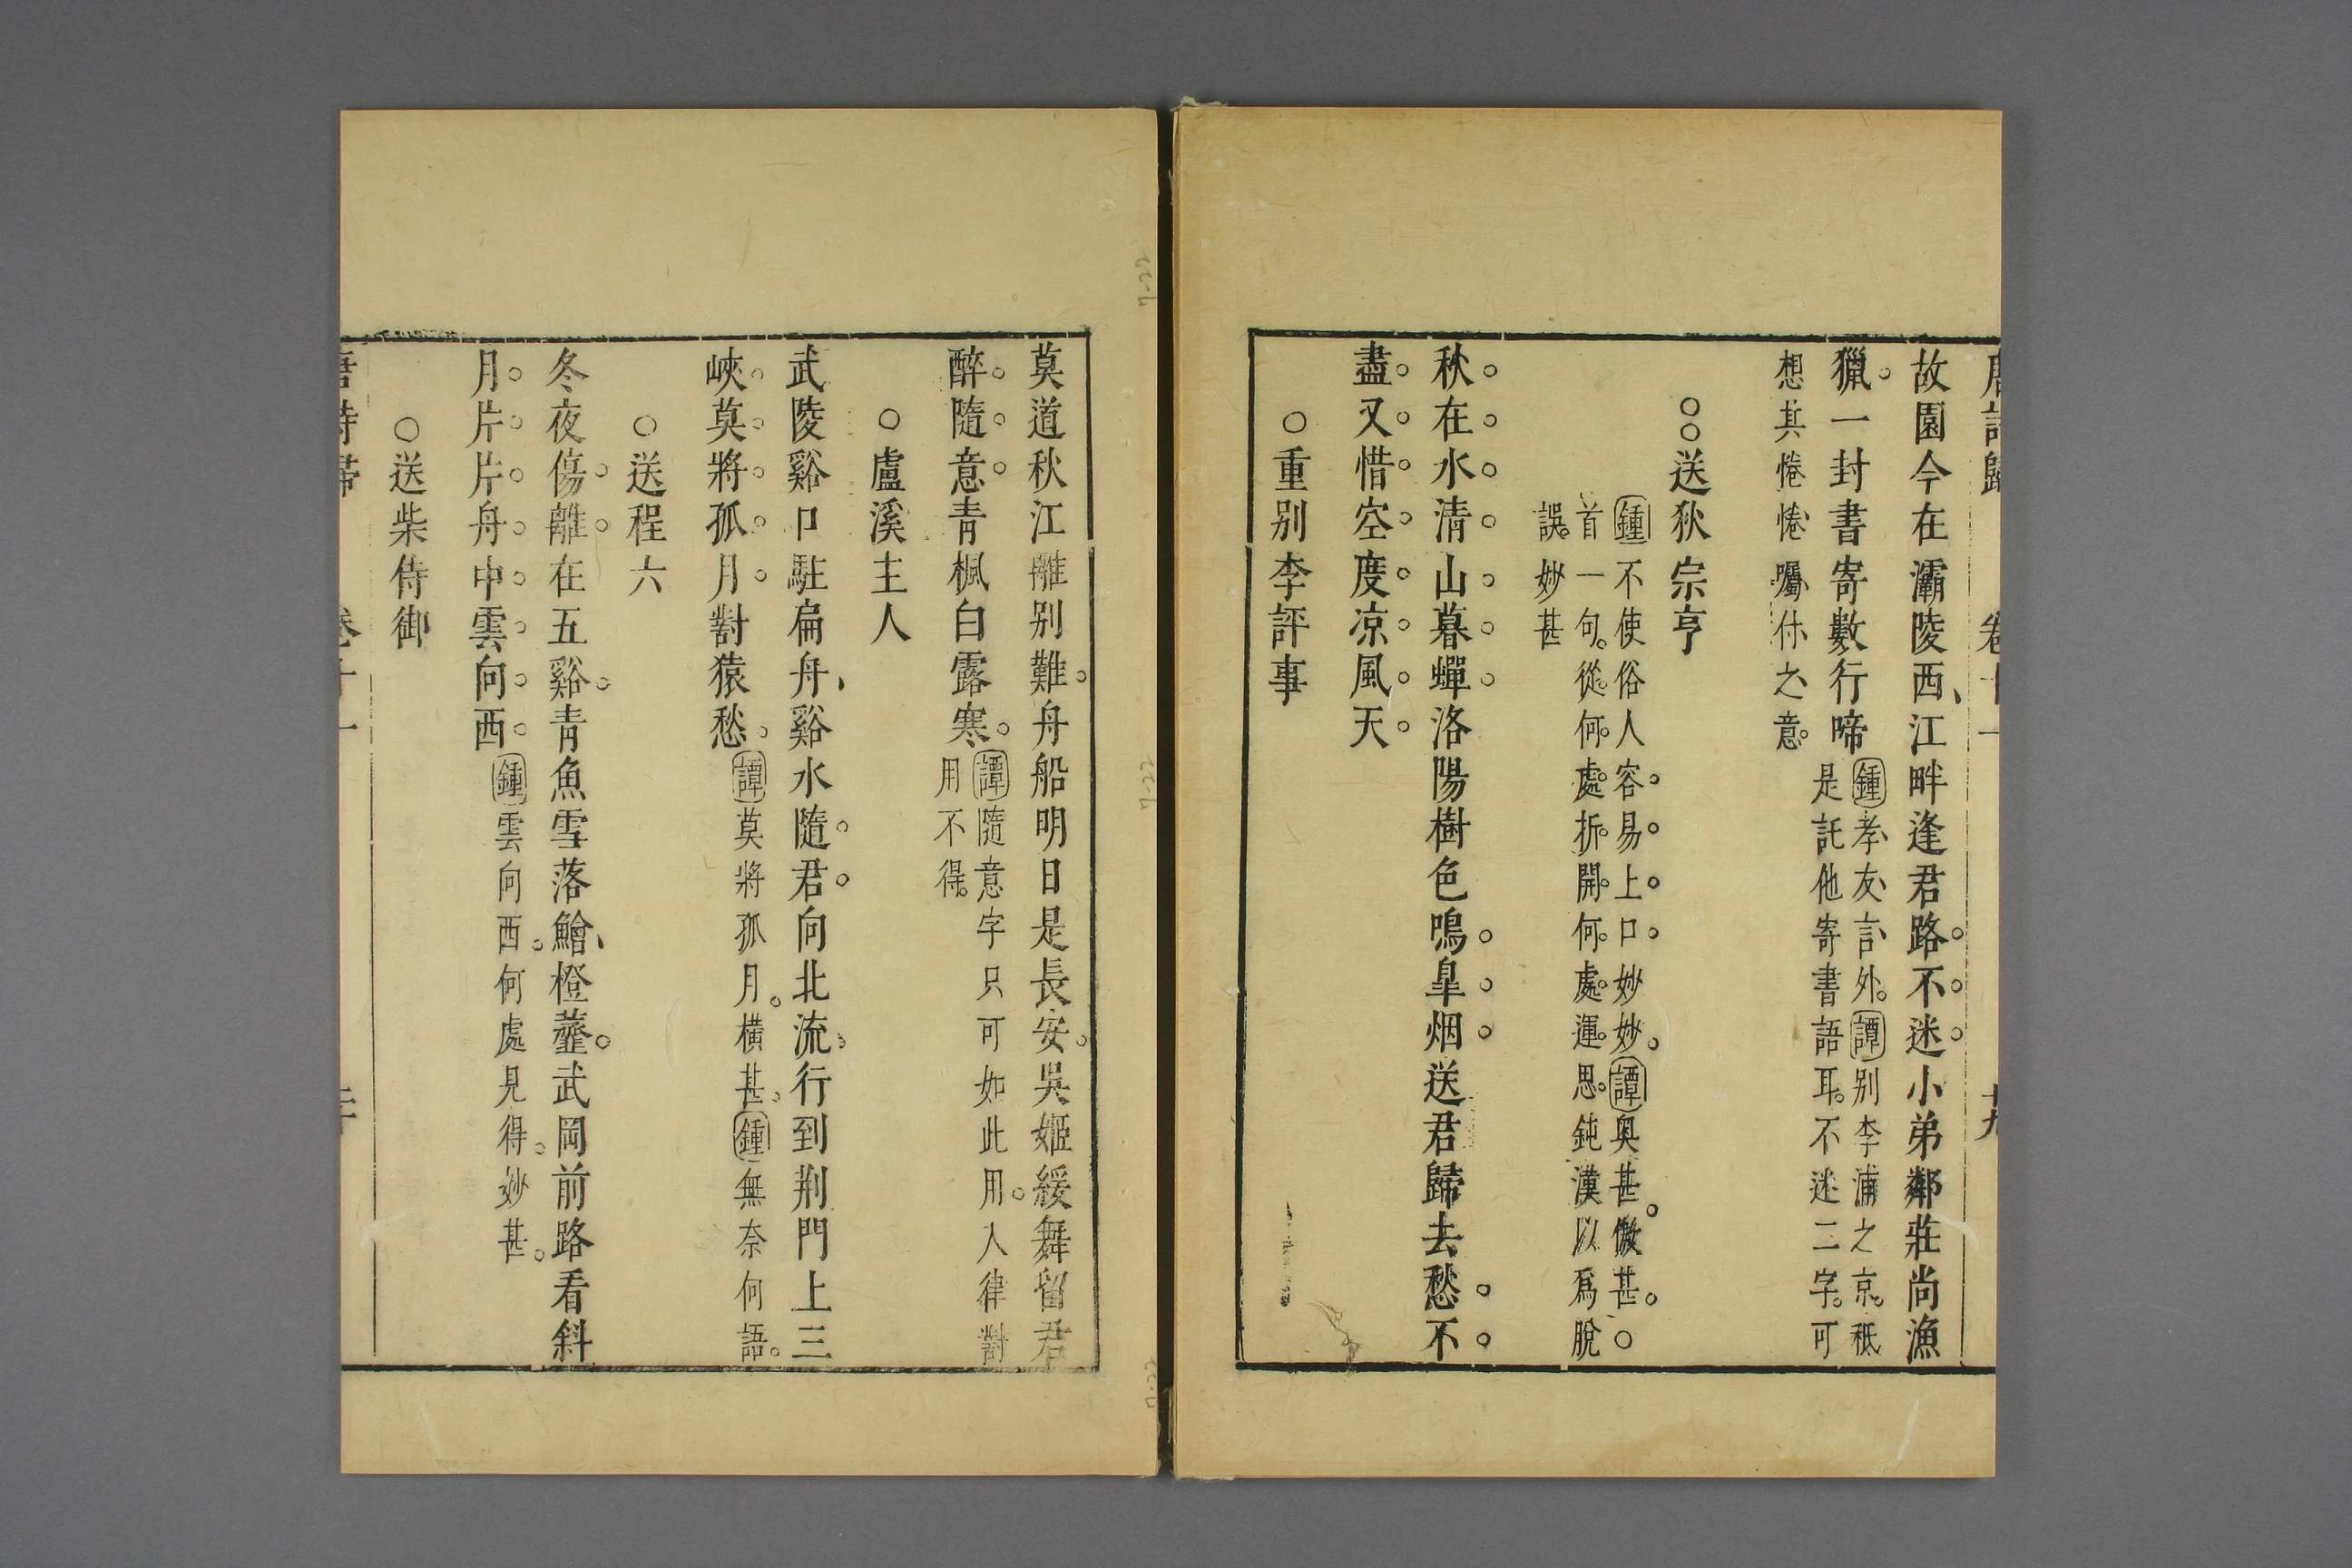 唐詩歸 卷十一 十九
故園今在灞陵西江畔逢君路不迷小弟鄰莊尚漁
獵一封書寄數行啼
鍾孝友言外。譚别李浦之京。秪
是託他寄書語耳。不迷二字。可
想其惓惓囑付之意。
○○送狄宗亨
鍾不使俗人容易上口妙妙。譚奥甚。傲甚。○
首一句。從何處折開。何處運思。鈍漢以爲脫
誤。妙甚
秋在水清山暮蟬洛陽樹色鳴臯烟送君歸去愁不
盡又惜空度凉風天
○重别李評事
莫道秋江離别難舟船明日是長安吳姬緩舞留君
醉隨意青楓白露寒
譚隨意字只可如此用。人律對
用不得。
○盧溪主人
武陵谿口駐扁舟谿水隨君向北流行到荆門上三
峽莫將孤月對猿愁
譚莫將孤月。橫甚。鍾無奈何語。
○送程六
冬夜傷離在五谿青魚雪落鱠橙虀武岡前路看斜
月片片舟中雲向西
鍾雲向西。何處見得。妙甚。
○送柴侍御
唐詩歸 卷十一 二十